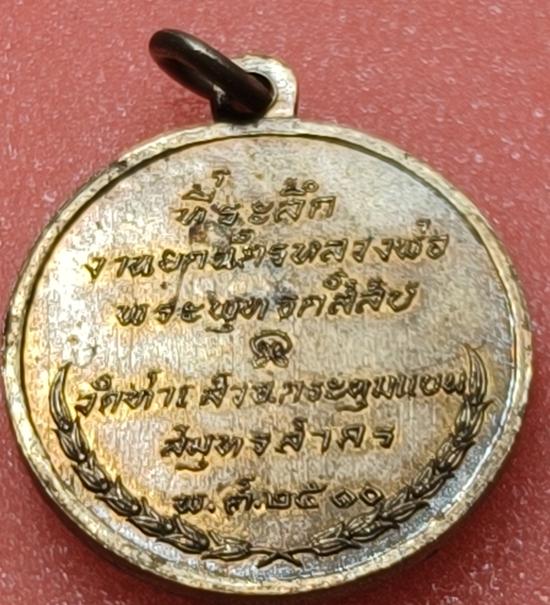 ที่ระลึก
งานยกฉัตรหลวงพ่อ
พระพุทธ
วัดท่าเสา อ.กระทุมแบน
สมุทรสาคร
พ.ศ.๒๕๑๐